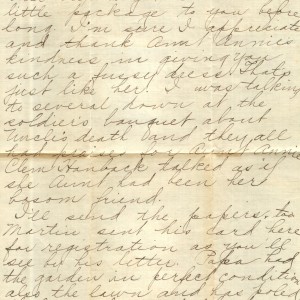 little package to you before
long. I'm sure I appreciate
and thank Ann Annie's
kindness in giving you
such a fussy dress. That's
just like her. I was talking
to several down at the
soldier's banquet about
Uncle's death and they all
had praises for Aunt Annie.
Clem Hanback talked as if
she Aunt had been her
bosom friend.
I'll send the papers, too
Martin sent his card here
for registration as you'll
see by his letter. Papa had
the garden in perfect condition
also the lawn and has